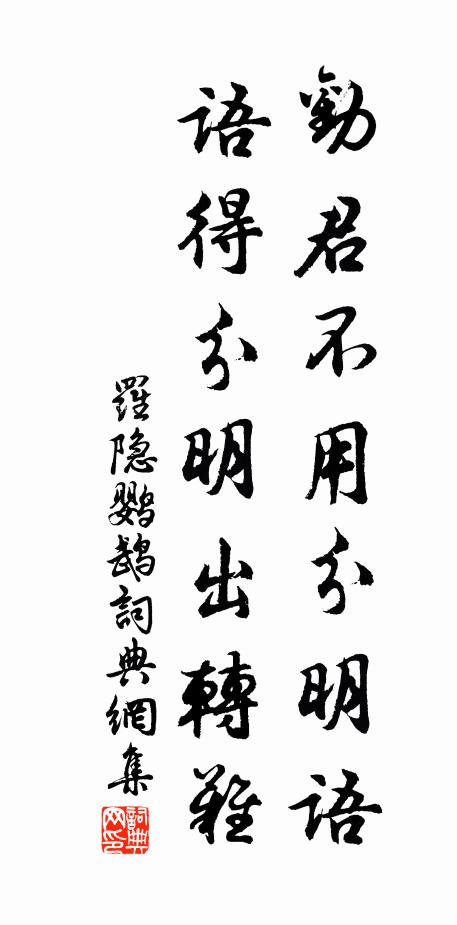 勸君不用分明語
語得分明出轉難
羅隐鸚鵡詞典網集
詞典网印